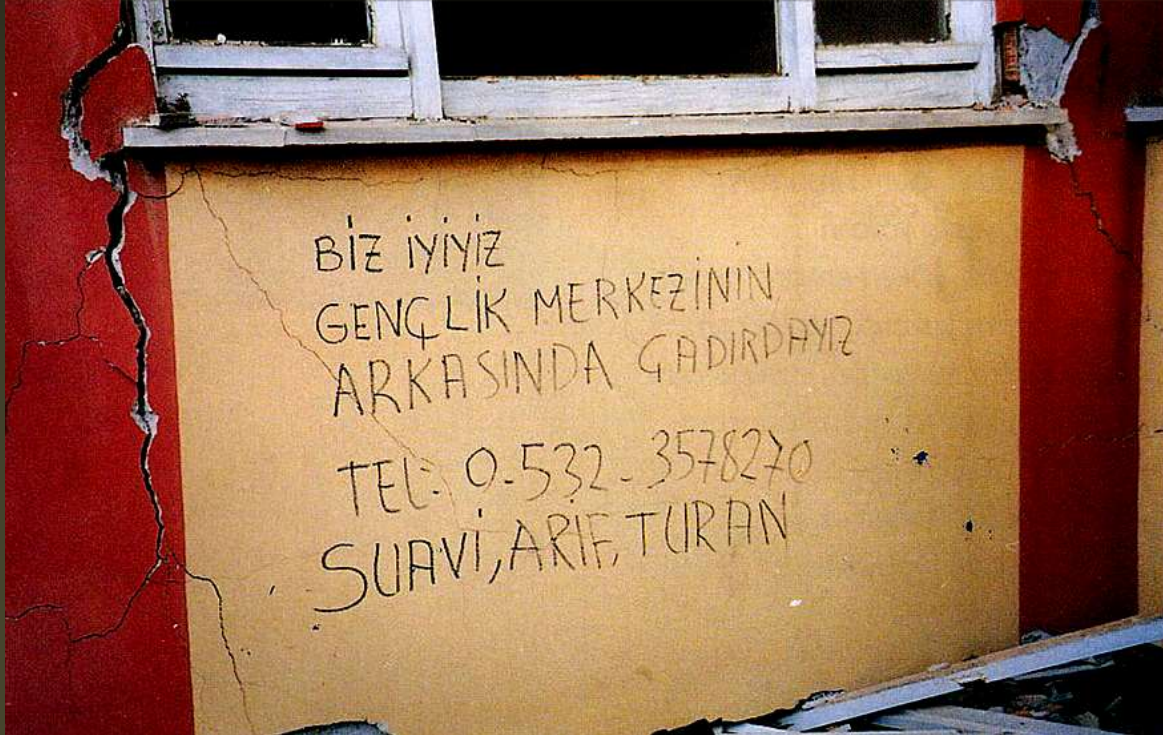 BİZ İYİYİZ
GENÇLİK MERKEZİNİN
ARKASINDA ÇADIRDAYIZ
TEL: 0-532-3578270
SUAVİ, ARİF, TURAN